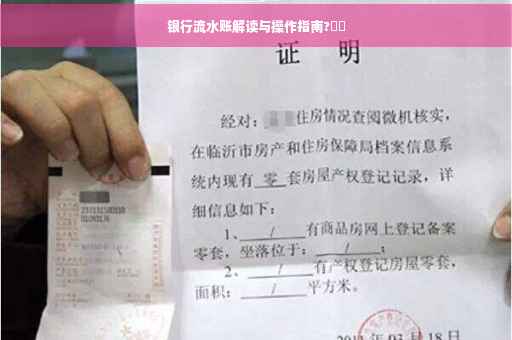 银行流水账解读与操作指南?
证 明
经对：住房情况查阅微机核实，
在临沂市房产和住房保障局档案信息系
统内现有 零 套房屋产权登记记录，详
细信息如下：
1、 / 有商品房网上登记备案
零套，坐落位于： / ；
2、 / 有产权登记房屋零套，
面积： / 平方米。
月 18 日